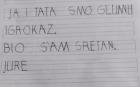 JA I TATA SMO GLEDALI
IGROKAZ.
BIO SAM SRETAN.
JURE